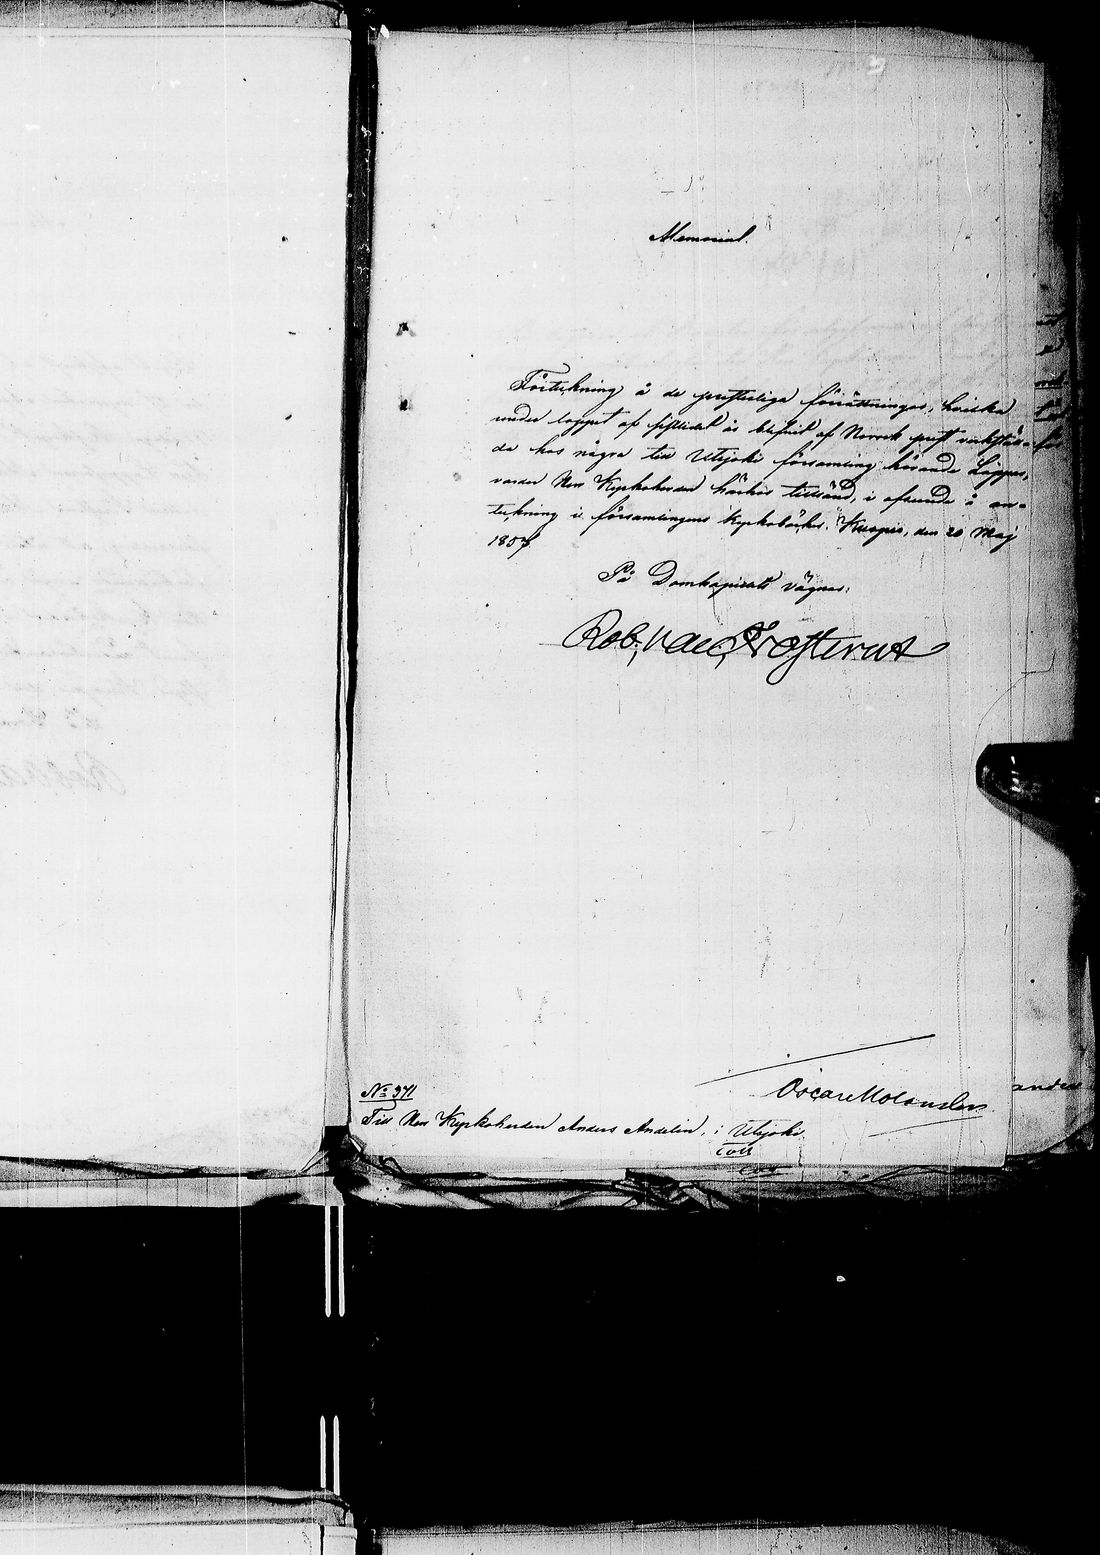 Memorial.
Förteckning å de presterliga förrättningar, hvilka
under loppet af sistlidet år blifvit af Norrsk prest verkstäl-
da hos några till Utsjoki församling hörande Lappar,
varder Herr Kyrkoherden härhos tillsänd, i afseende å an-
teckning i församlingens kyrkoböcker. Kuopio, den 20 Maj
1857.
På Domkapitels vägnar:
Rob. Val. Frosterus
Oscar Molander
No 371
Till Herr Kyrkoherden Anders Andelin, i Utsjoki
Coll